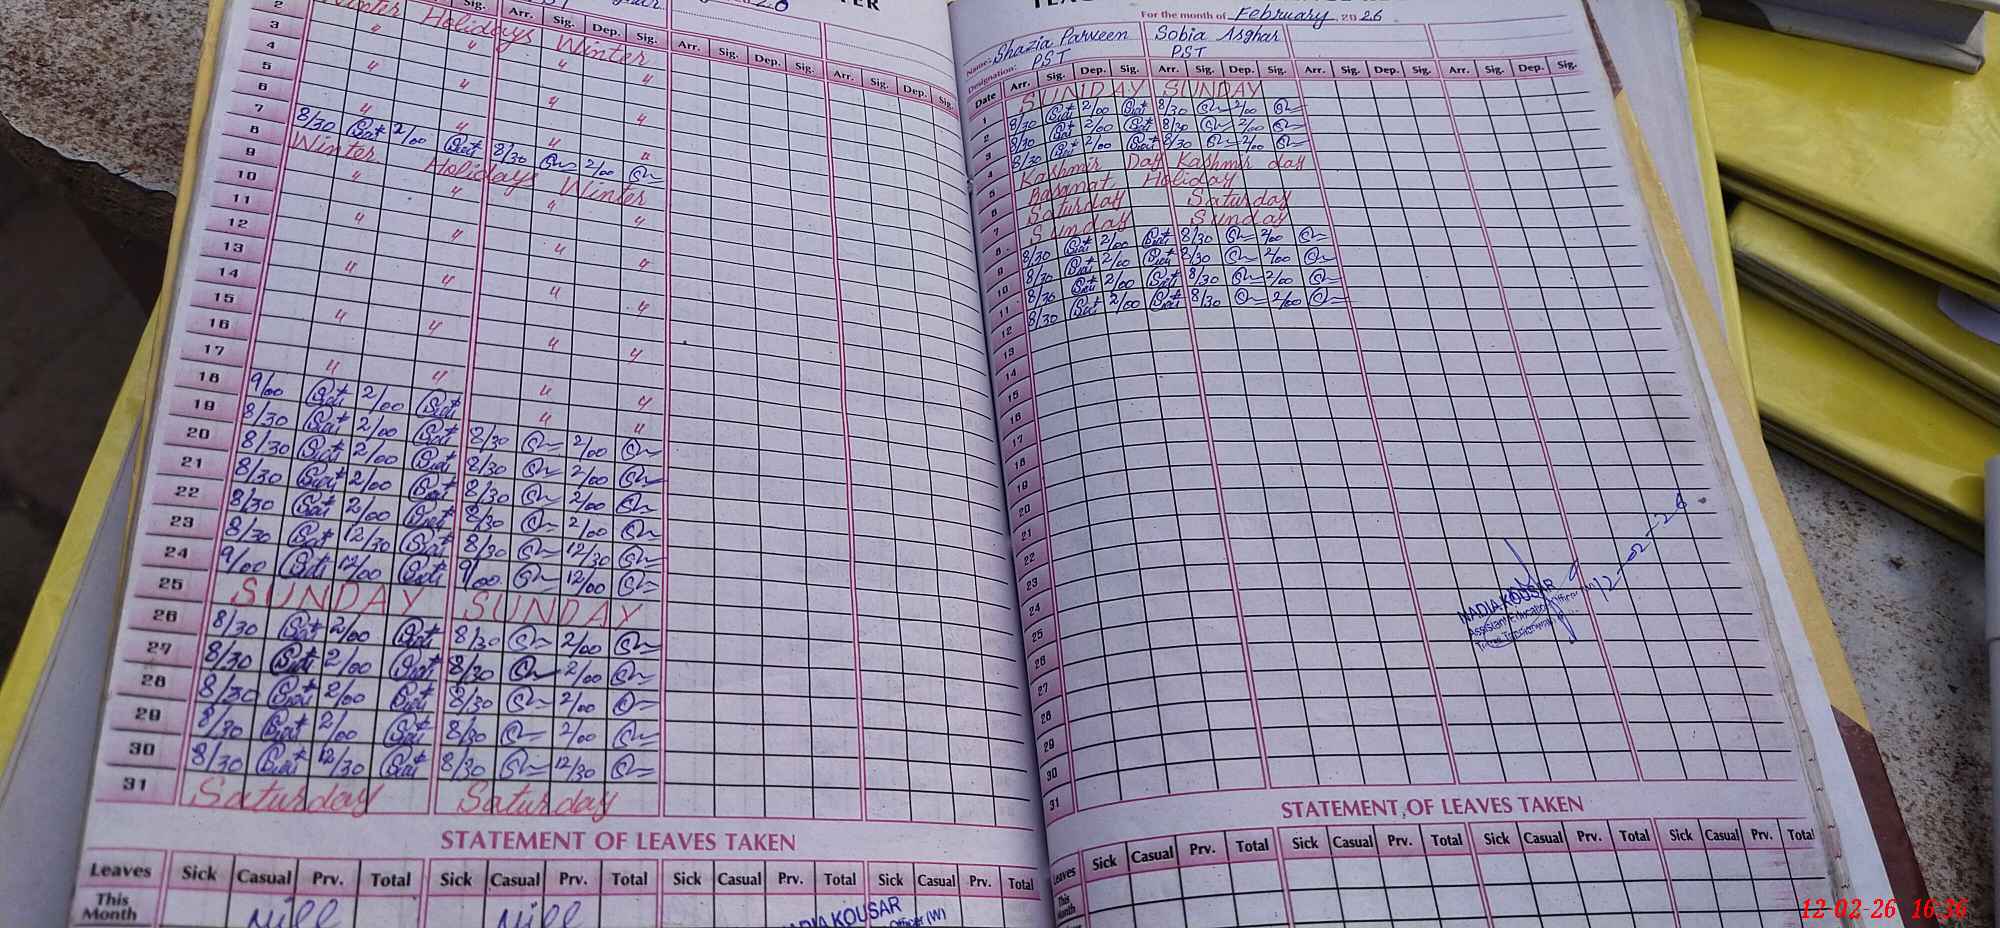 Sig. Arr. Sig. Dep. Sig. Arr. Sig. Dep. Sig. Arr. Sig. Dep. Sig.
2 Winter Holidays Winter
3 " " " "
4
5 " " " "
6
7 " " " "
8 8/30 2/00 8/30 2/00
9 Winter Holidays Winter
10 " " " "
11
12 " " " "
13
14 " " " "
15
16 " " " "
17
18 9/00 2/00 " "
19 8/30 2/00 " "
20 8/30 2/00 8/30 2/00
21 8/30 2/00 8/30 2/00
22 8/30 2/00 8/30 2/00
23 8/30 12/30 8/30 12/30
24 9/00 12/00 9/00 12/00
25 SUNDAY SUNDAY
26 8/30 2/00 8/30 2/00
27 8/30 2/00 8/30 2/00
28 8/30 2/00 8/30 2/00
29 8/30 2/00 8/30 2/00
30 8/30 12/30 8/30 12/30
31 Saturday Saturday
STATEMENT OF LEAVES TAKEN
Leaves Sick Casual Prv. Total Sick Casual Prv. Total Sick Casual Prv. Total Sick Casual Prv. Total
This Month Nill Nill
NADIA KOUSAR
Officer (W)
For the month of February 2026
Name: Shazia Parveen Sobia Asghar
Designation: PST PST
Date Arr. Sig. Dep. Sig. Arr. Sig. Dep. Sig. Arr. Sig. Dep. Sig. Arr. Sig. Dep. Sig.
1 SUNDAY SUNDAY
2 8/30 2/00 8/30 2/00
3 8/30 2/00 8/30 2/00
4 8/30 2/00 8/30 2/00
5 Kashmir Day Kashmir day
6 Basanat Holiday
7 Saturday Saturday
8 Sunday Sunday
9 8/30 2/00 8/30 2/00
10 8/30 2/00 8/30 2/00
11 8/30 2/00 8/30 2/00
12 8/30 2/00 8/30 2/00
13
14
15
16
17
18
19
20
21
22
23
24
25
26
27
28
29
30
31
NADIA KOUSAR
Assistant Education Officer (W)
12-02-26
STATEMENT OF LEAVES TAKEN
Leaves Sick Casual Prv. Total Sick Casual Prv. Total Sick Casual Prv. Total Sick Casual Prv. Total
This Month
12-02-26 16:36